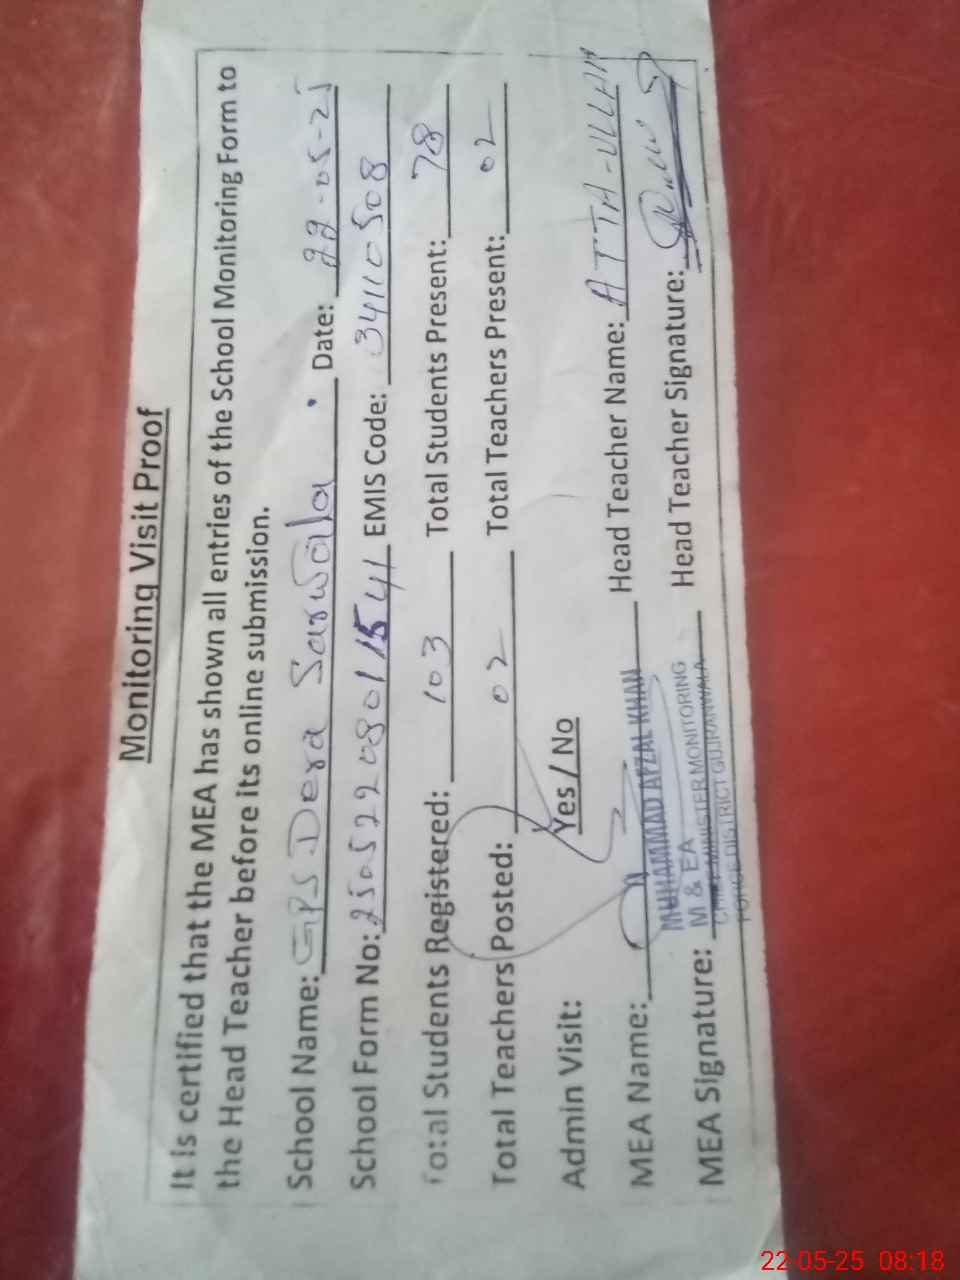 Monitoring Visit Proof
It is certified that the MEA has shown all entries of the School Monitoring Form to
the Head Teacher before its online submission.
School Name: GPS Dera Sarwala. Date: 22-05-25
School Form No: 25052208011541 EMIS Code: 34110508
Total Students Registered: 103 Total Students Present: 78
Total Teachers Posted: 02 Total Teachers Present: 02
Admin Visit: Yes / No
MEA Name: Head Teacher Name: ATTA-ULLAH
MUHAMMAD AFZAL KHAN
M & EA
CHIEF MINISTER MONITORING
FORCE DISTRICT GUJRANWALA
MEA Signature: Head Teacher Signature:
22-05-25 08:18